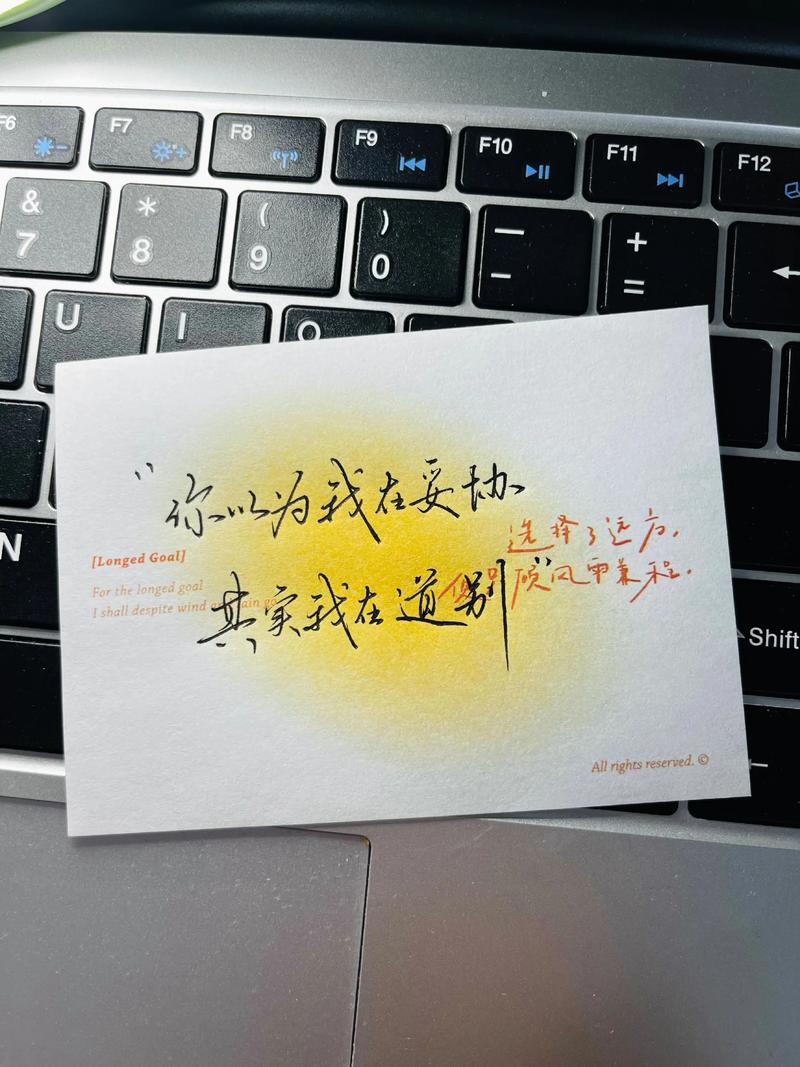 F6 F7 F8 F9 F10 F11 F12
& * ( ) — +
7 8 9 0 - =
U I O
“你以为我在妥协
选择了远方,
[Longed Goal]
For the longed goal
I shall despite wind and rain go
其实我在道别”
便只顾风雨兼程.
N
Shift
All rights reserved. ©